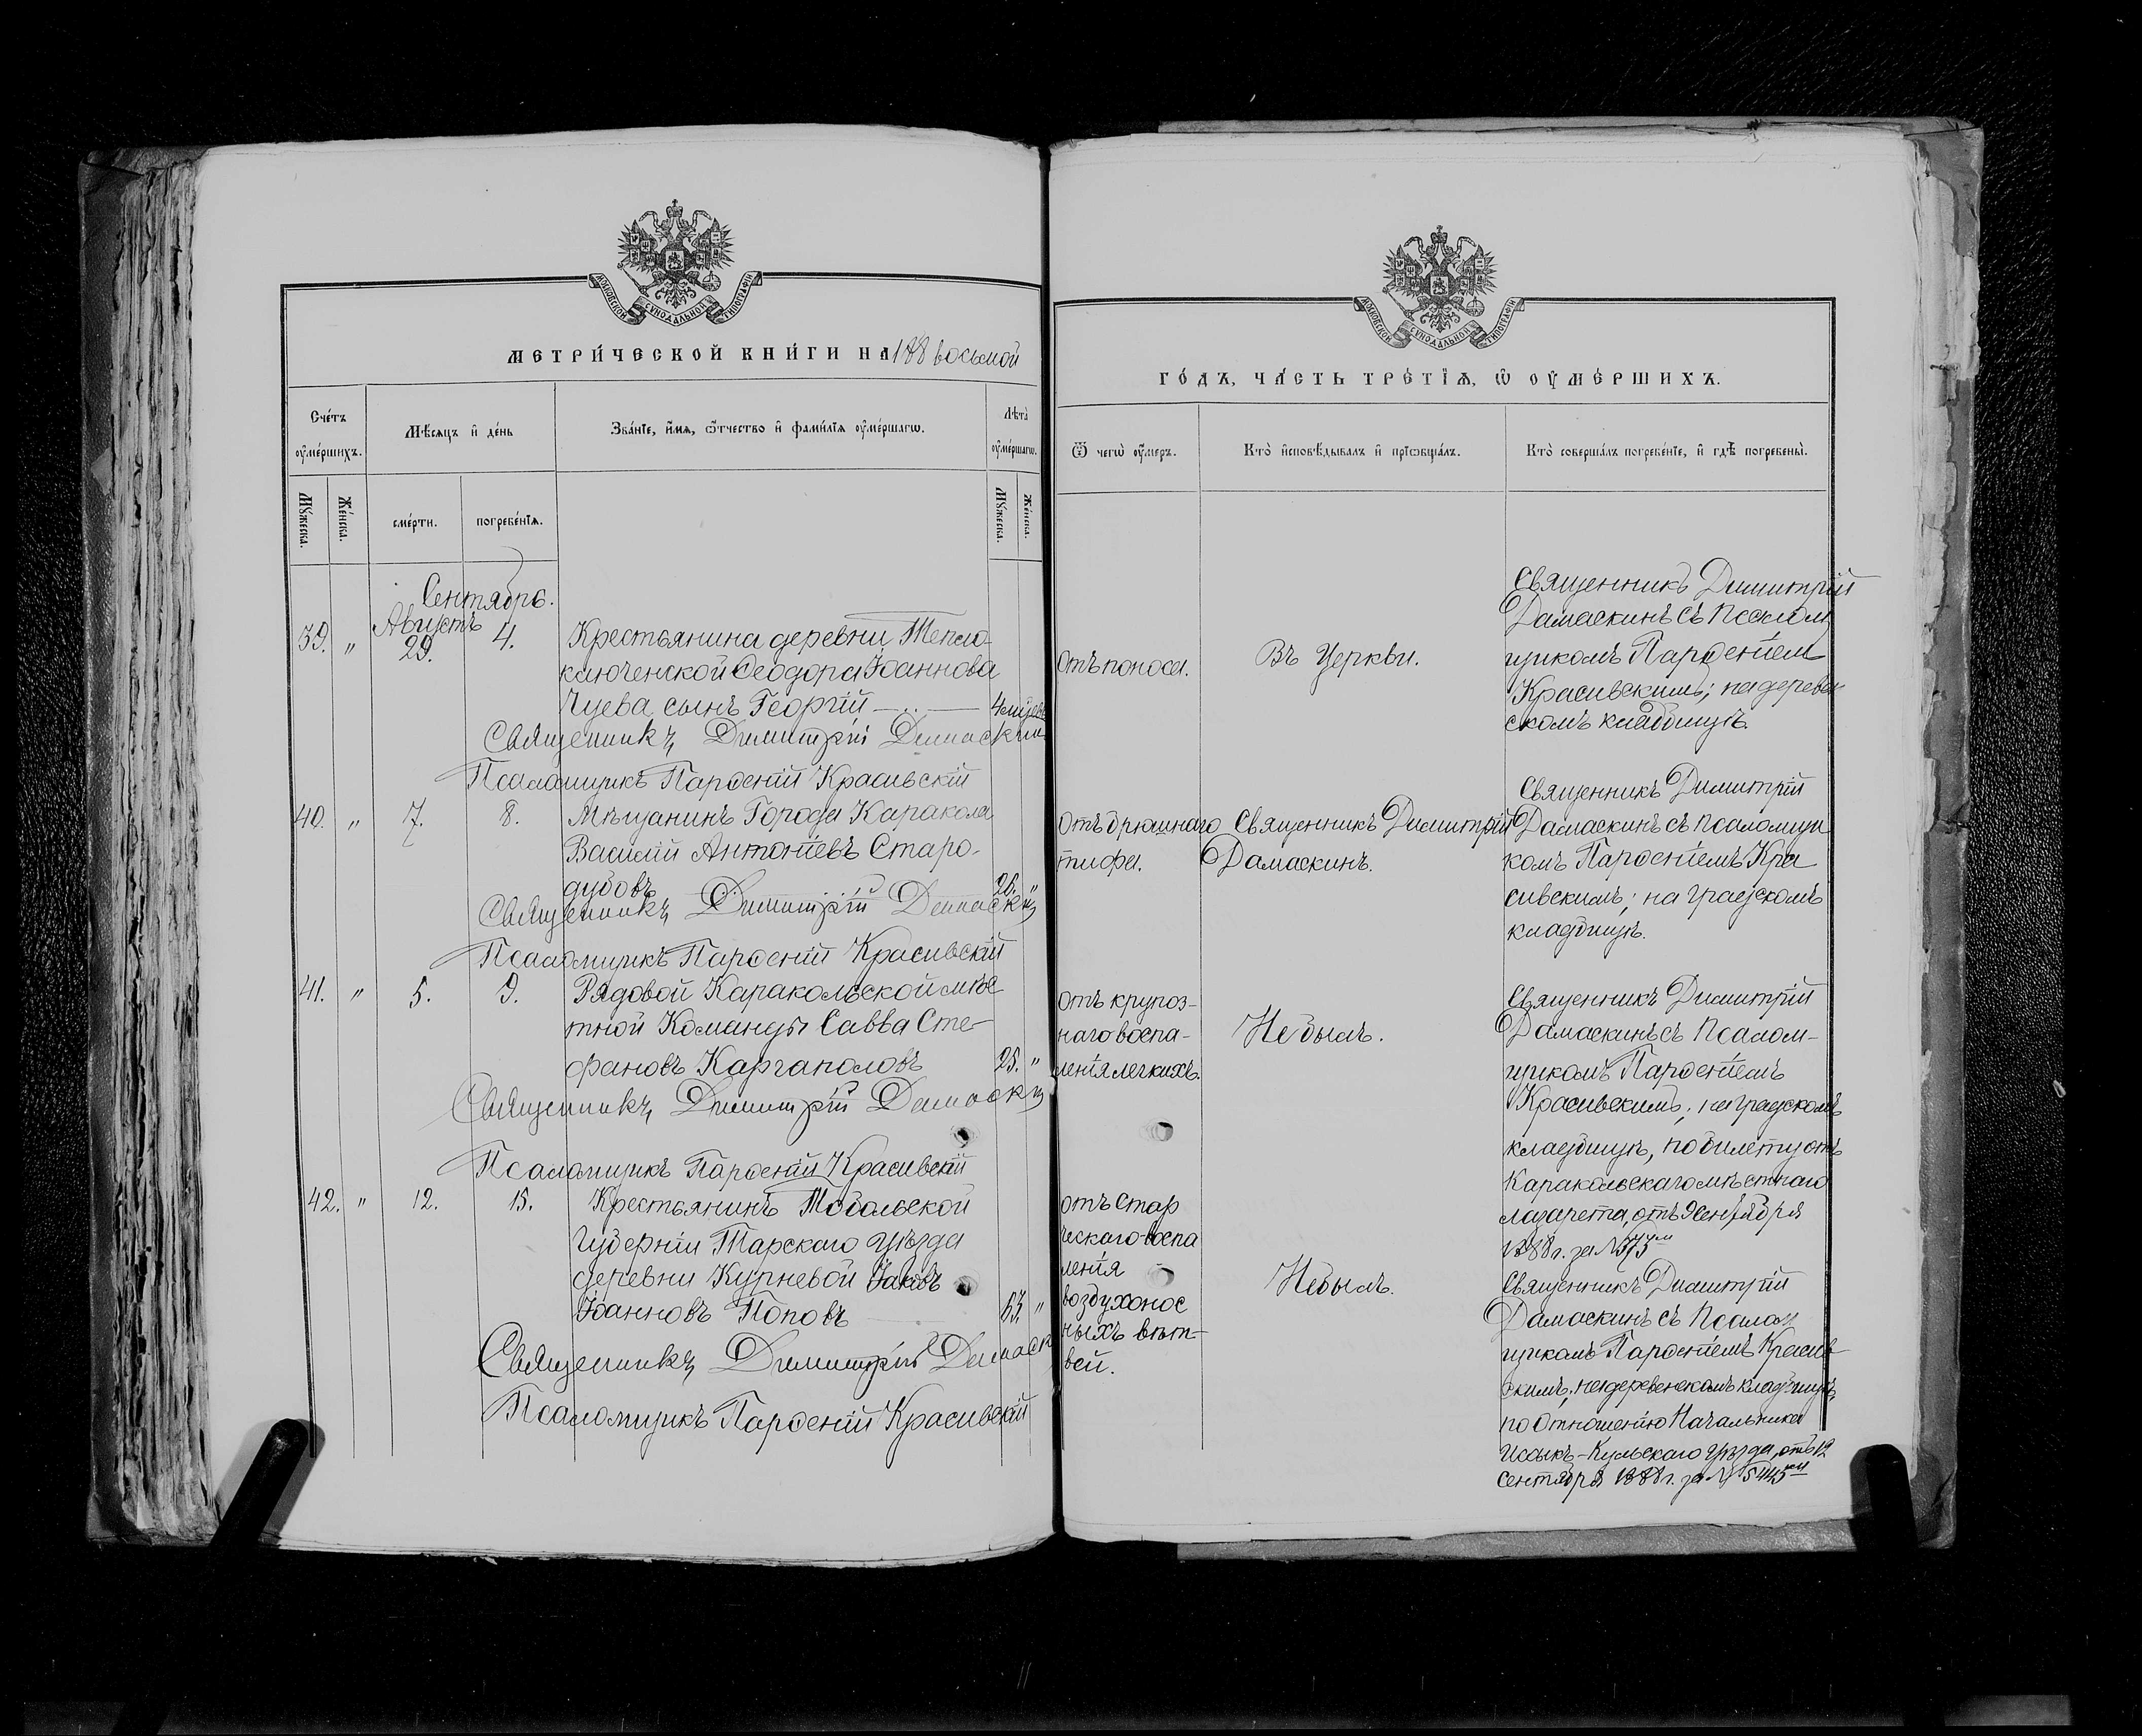 МОСКОВСКОЙ СѴНОДАЛЬНОЙ ТИПОГРАФІИ
МЕТРИ́ЧЕСКОЙ КНИ́ГИ НА 188 восьмой
Сче́тъ ᲂу҆ме́ршихъ.
Мѣ́сяцъ и҆ де́нь
Зва́нїе, и҆́мѧ, ѻ҆́тчество и҆ фами́лїѧ ᲂу҆ме́ршагѡ.
Лѣ́та ᲂу҆ме́ршагѡ.
Мꙋ́жеска.
Же́нска.
сме́рти.
погребе́нїѧ.
Мꙋ́жеска.
Же́нска.
Сентябрь.
Августъ
39. " 29. 4. Крестьянина деревни Тепло-
ключенской Ѳеодора Іоаннова
Чуева сынъ Георгій 4 мѣсяц
Священникъ Димитрій Дамаскин
Псаломщикъ Парѳеній Красивскій
40. " 7. 8. Мѣщанинъ Города Каракола
Василій Антоніевъ Старо-
дубовъ 26. "
Священникъ Димитрій Дамаскин
Псаломщикъ Парѳеній Красивскій
41. " 5. 9. Рядовой Каракольской мѣс
тной Команды Савва Сте-
фановъ Каргаполовъ 25. "
Священникъ Димитрій Дамаскин
Псаломщикъ Парѳеній Красивскій
42. " 12. 15. Крестьянинъ Тобольской
Губерніи Тарскаго Уѣзда
деревни Курневой Іаковъ
Іоанновъ Поповъ 63. "
Священникъ Димитрій Дамаск
Псаломщикъ Парѳеній Красивскій
МОСКОВСКОЙ СѴНОДАЛЬНОЙ ТИПОГРАФІИ
ГО́ДЪ, ЧА́СТЬ ТРЕ́ТЇѦ, Ѡ҆ ОУ҆МЕ́РШИХЪ.
Ѿ чегѡ̀ ᲂу҆́меръ.
Кто̀ и҆сповѣ́дывалъ и҆ прїѡбща́лъ.
Кто̀ соверша́лъ погребе́нїе, и҆ гдѣ̀ погребены̀.
отъ поноса.
Въ Церкви.
Священникъ Димитрій
Дамаскинъ съ Псалом
щикомъ Парѳеніем
Красивскимъ; на деревен
скомъ кладбищѣ.
отъ брюшнаго
тифа.
Священникъ Димитрій
Дамаскинъ.
Священникъ Димитрій
Дамаскинъ съ псаломщи
комъ Парѳеніемъ Кра
сивскимъ; на градскомъ
кладбищѣ.
отъ крупоз-
наго воспа-
ленія легкихъ.
Не былъ.
Священникъ Димитрій
Дамаскинъ съ Псалом-
щикомъ Парѳеніемъ
Красивскимъ; на градскомъ
кладбищѣ, по билету отъ
Каракольскаго мѣстнаго
лазарета, отъ 9 сентября
1888 г. за № 575мъ
отъ стар
ческаго воспа
ленія
воздухонос
ныхъ вѣт-
вей.
Не былъ.
Священникъ Димитрій
Дамаскинъ съ Псалом
щикомъ Парѳеніемъ Красив
скимъ; на деревенскомъ кладбищѣ,
по отношенію Начальника
Иссыкъ-Кульскаго Уѣзда, отъ 12
Сентября 1888 г. за № 5445мъ